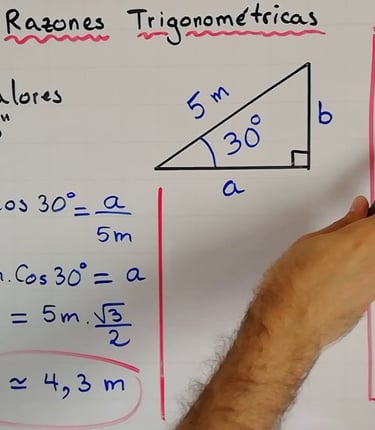 Razones Trigonométricas
5 m
30°
b
a
30° = a
5m
. Cos 30° = a
= 5m . √3
2
≃ 4,3 m